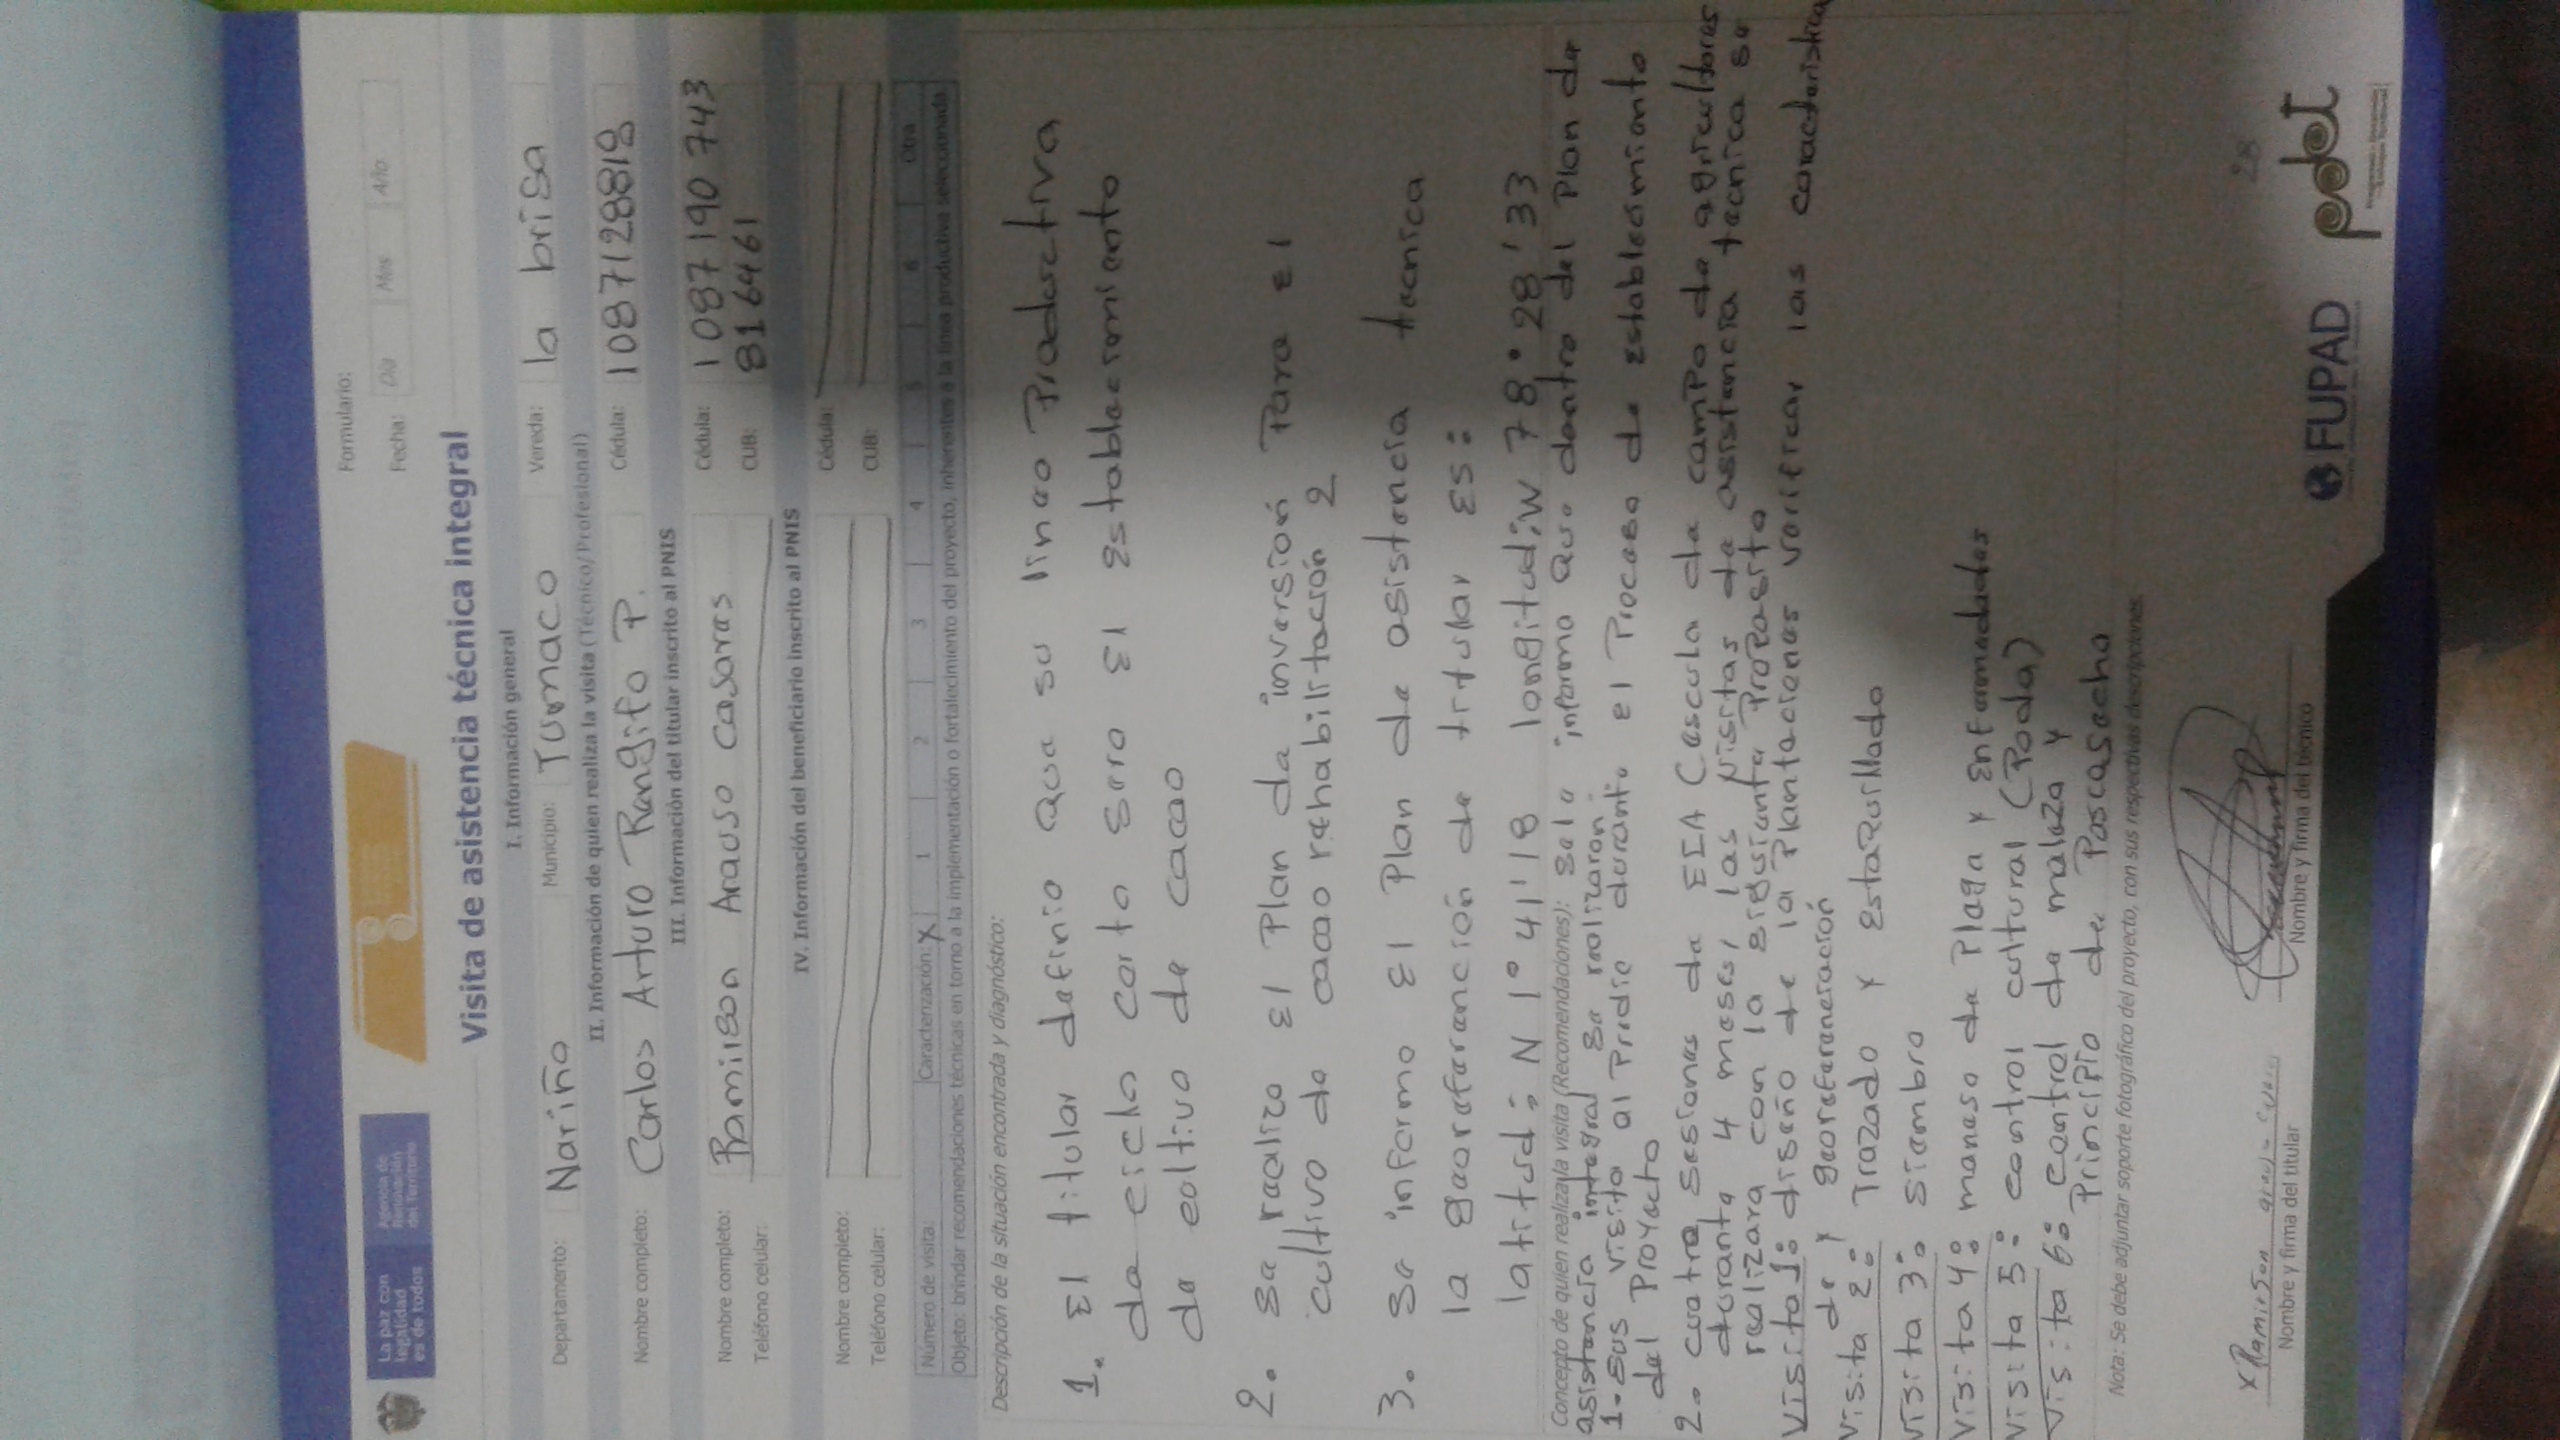 La paz con
legalidad
es de todos
Agencia de
Renovación
del Territorio
Formulario:
Fecha: Día Mes Año
Visita de asistencia técnica integral
I. Información general
Departamento: Nariño Municipio: Tumaco Vereda: la brisa
II. Información de quien realiza la visita (Técnico/Profesional)
Nombre completo: Carlos Arturo Rengifo P. Cédula: 1087128818
III. Información del titular inscrito al PNIS
Nombre completo: Ramilson Arauso Casaras Cédula: 1087190743
Teléfono celular: CUB: 816461
IV. Información del beneficiario inscrito al PNIS
Nombre completo: Cédula:
Teléfono celular: CUB:
Número de visita: Caracterización: X 1 2 3 4 5 6 Otra
Objeto: brindar recomendaciones técnicas en torno a la implementación o fortalecimiento del proyecto, inherentes a la línea productiva seleccionada.
Descripción de la situación encontrada y diagnóstico:
1. El titular definio que su linea Productiva
de ciclo corto sera El establecimiento
de cultivo de cacao
2. se realizo El Plan de inversión Para El
cultivo de cacao rehabilitación 2
3. se informo El Plan de asistencia tecnica
la georeferanción de titular Es:
latitud: N 1° 41' 18 longitud: W 78° 28' 33
Concepto de quien realiza la visita (Recomendaciones): se le informo que dentro del Plan de
asistencia integral se realizaron:
1. sus visita al Predio durante el Proceso de establecimiento
del Proyecto
2. cuatro sesiones de ECA (escula de campo de agricultores
durante 4 meses, las visitas de asistencia tecnica se
realizara con la siguiente Proposito
Visita 1: diseño de la Plantaciones verificar las caracteristica
de y georeferenciación
Visita 2: Trazado y estaquillado
Visita 3: siembra
Visita 4: maneso de Plaga y Enfermedades
Visita 5: control cultural (Poda)
Visita 6: control de maleza y
Principio de Poscasecha
Nota: Se debe adjuntar soporte fotográfico del proyecto, con sus respectivas descripciones.
x Ramirson
Nombre y firma del titular
Nombre y firma del técnico
28
FUPAD
pdet